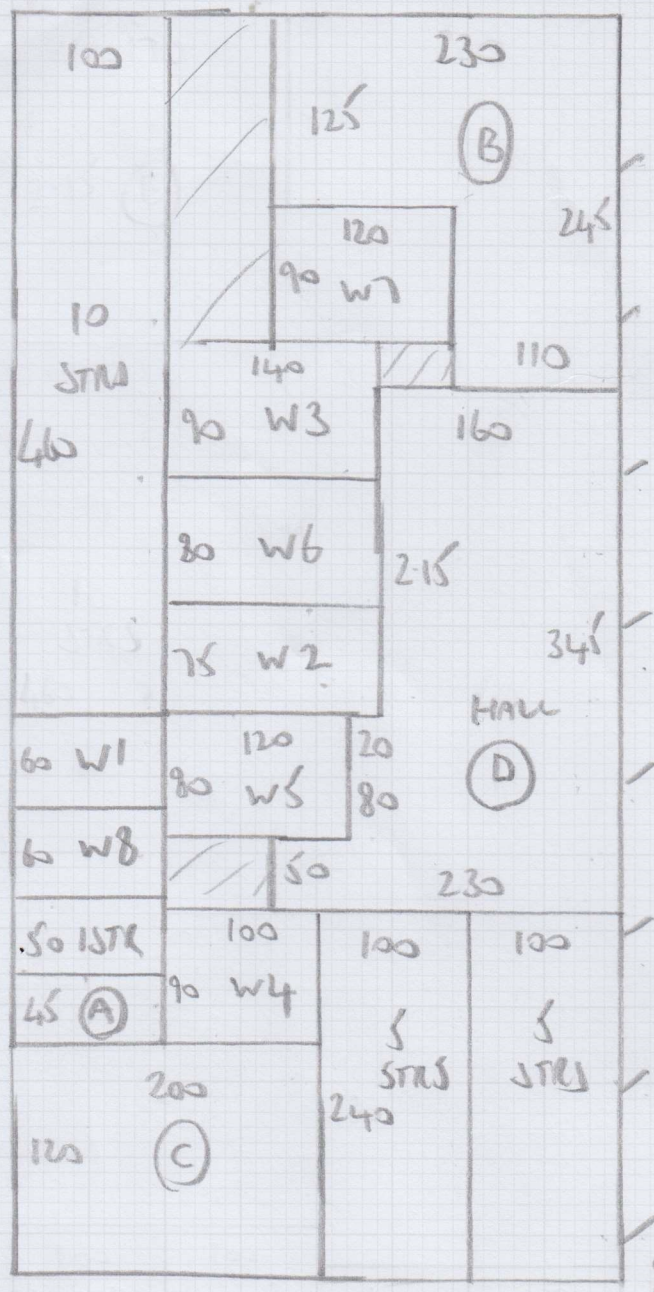 100
230
125
B
245
120
90 W7
10
STRS
460
110
140
90 W3
160
80 W6
215
75 W2
345
HALL
60 W1
120
20
80 W5
80
D
60 W8
50
230
.50 1STR
100
100
100
90 W4
45 A
5
STRS
5
STRS
200
240
120
C